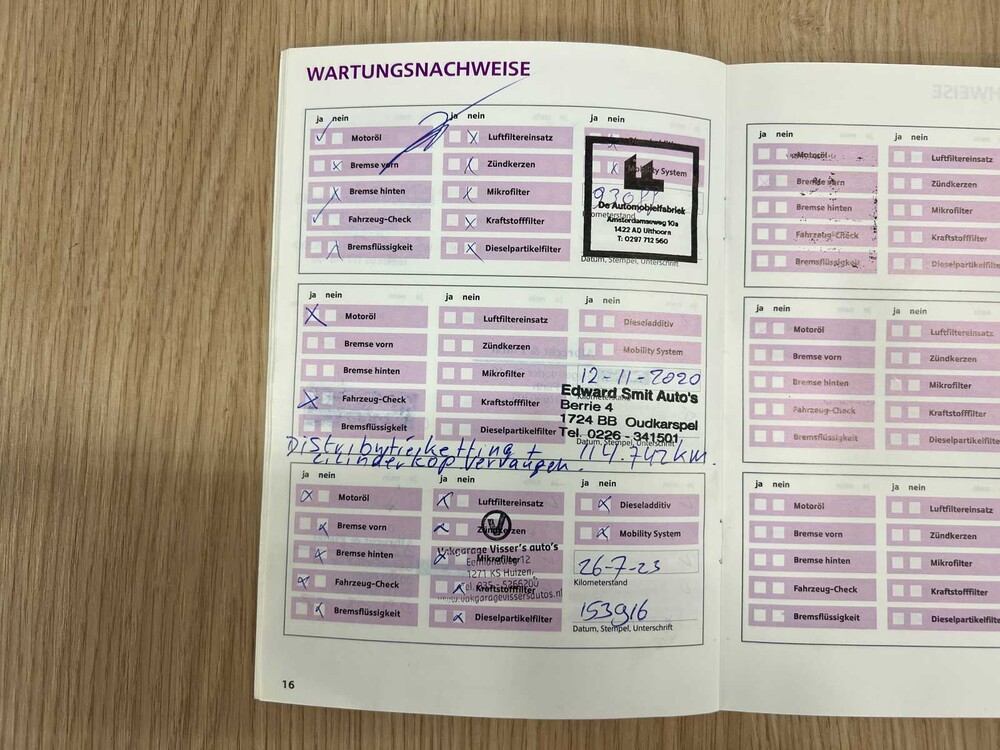 WARTUNGSNACHWEISE
ja nein
Motoröl
Bremse vorn
Bremse hinten
Fahrzeug-Check
Bremsflüssigkeit
ja nein
Luftfiltereinsatz
Zündkerzen
Mikrofilter
Kraftstofffilter
Dieselpartikelfilter
ja nein
Mobility System
De Automobielfabriek
Amsterdamseweg 10a
1422 AD Uithoorn
T: 0297 712 560
Kilometerstand
Datum, Stempel, Unterschrift
ja nein
Motoröl
Bremse vorn
Bremse hinten
Fahrzeug-Check
Bremsflüssigkeit
ja nein
Luftfiltereinsatz
Zündkerzen
Mikrofilter
Kraftstofffilter
Dieselpartikelfilter
ja nein
Dieseladditiv
Mobility System
12-11-2020
Kilometerstand
Edward Smit Auto's
Berrie 4
1724 BB Oudkarspel
Tel. 0226 - 341501
Datum, Stempel, Unterschrift
114.742km.
Distributieketting +
cilinderkop vervangen.
ja nein
Motoröl
Bremse vorn
Bremse hinten
Fahrzeug-Check
Bremsflüssigkeit
ja nein
Luftfiltereinsatz
Zündkerzen
Mikrofilter
Kraftstofffilter
Dieselpartikelfilter
Vakgarage Visser's auto's
1271 KS Huizen
Tel. 035 - 5266200
ja nein
Dieseladditiv
Mobility System
26-7-23
Kilometerstand
153916
Datum, Stempel, Unterschrift
16
ja nein
Motoröl
Bremse vorn
Bremse hinten
Fahrzeug-Check
Bremsflüssigkeit
ja nein
Luftfiltereinsatz
Zündkerzen
Mikrofilter
Kraftstofffilter
Dieselpartikelfilter
ja nein
Motoröl
Bremse vorn
Bremse hinten
Fahrzeug-Check
Bremsflüssigkeit
ja nein
Luftfiltereinsatz
Zündkerzen
Mikrofilter
Kraftstofffilter
Dieselpartikelfilter
ja nein
Motoröl
Bremse vorn
Bremse hinten
Fahrzeug-Check
Bremsflüssigkeit
ja nein
Luftfiltereinsatz
Zündkerzen
Mikrofilter
Kraftstofffilter
Dieselpartikelfilter